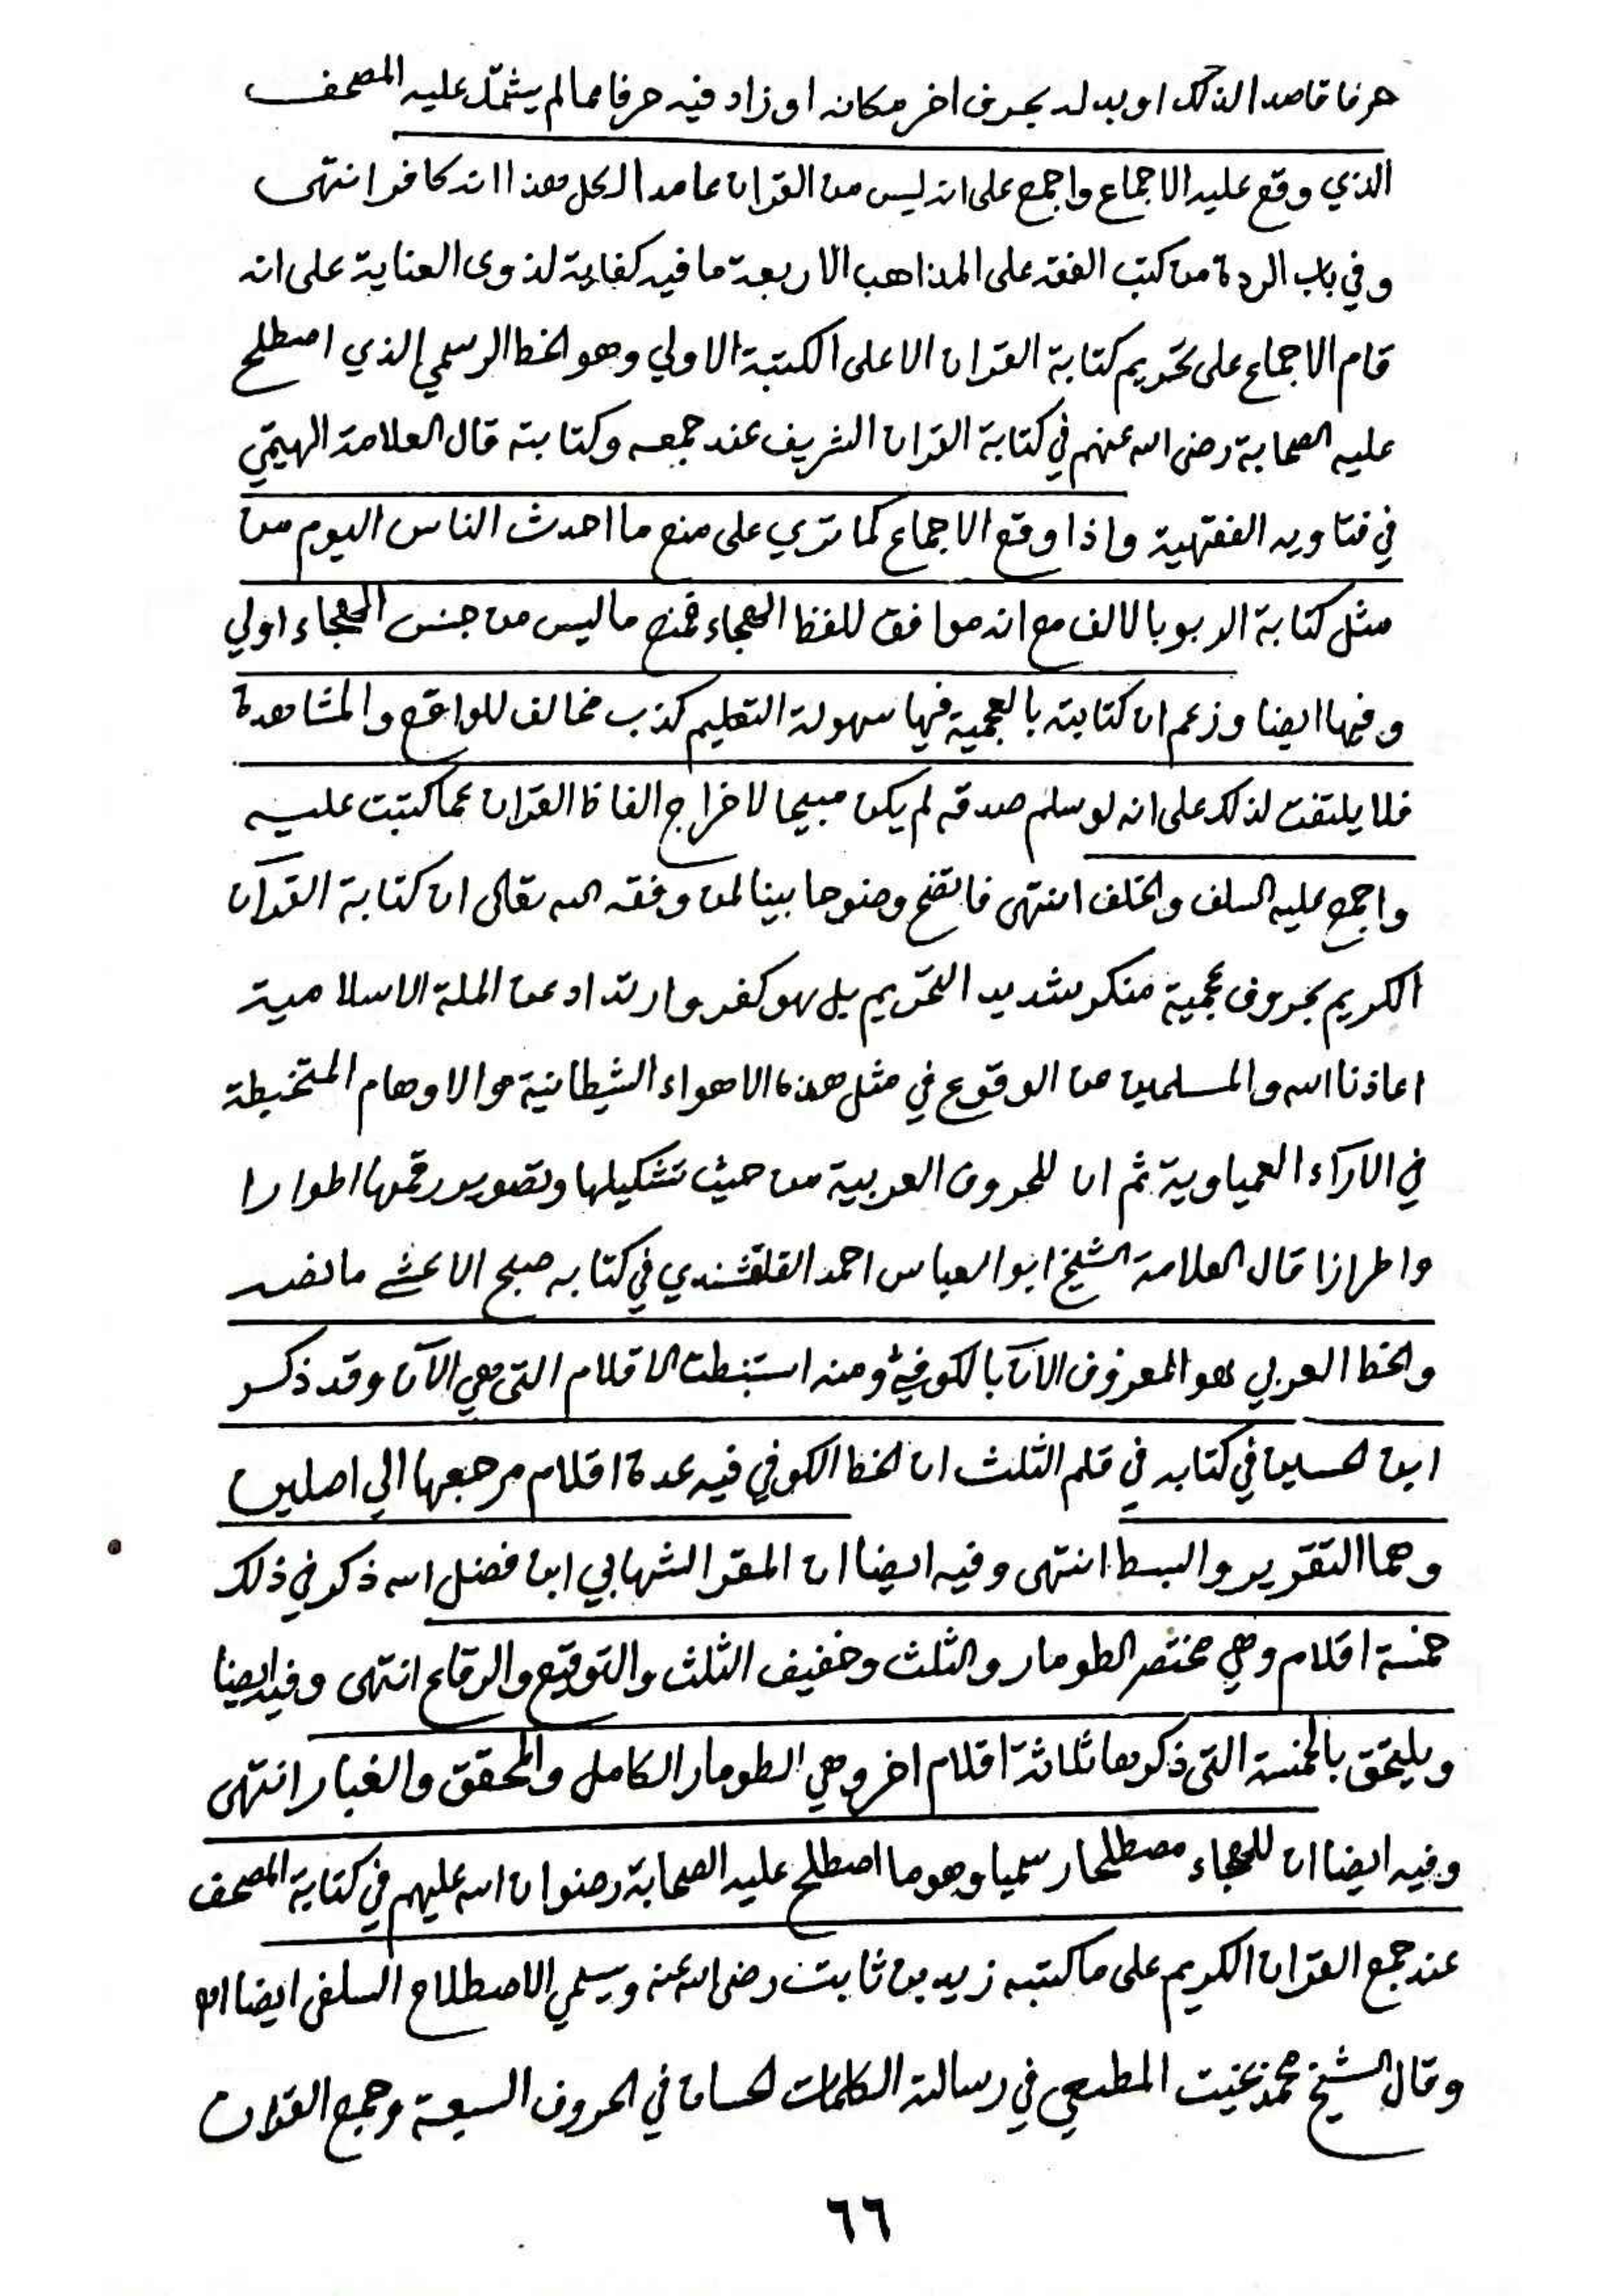 حرفا قاصدا لذلك او بدله بحرف اخر مكانه او زاد فيه حرفا مما لم يشتمل عليه المصحف
الذي وقع عليه الاجماع واجمع على انه ليس من القران عامدا لكل هذا انه كافر انتهى
وفي باب الردة من كتب الفقه على المذاهب الاربعة ما فيه كفاية لذوى العناية على انه
قام الاجماع على تحريم كتابة القران الا على الكتبة الاولي وهو الخط الرسمي الذي اصطلح
عليه الصحابة رضى الله عنهم في كتابة القران الشريف عند جمعه وكتابته قال العلامة الهيتمي
في فتاويه الفقهية واذا وقع الاجماع كما تري على منع ما احدث الناس اليوم من
مثل كتابة الربو بالالف مع انه موافق للفظ الهجاء فمنع ما ليس من جنس الهجاء اولي
وفيها ايضا وزعم ان كتابته بالعجمية فيها سهولة التعليم كذب مخالف للواقع والمشاهدة
فلا يلتفت لذلك على انه لو سلم صدقه لم يكن مبيحا لاخراج الفاظ القران عما كتبت عليه
واجمع عليه السلف والخلف انتهى فاتضح وضوحا بينا لمن وفقه الله تعالى ان كتابة القرآن
الكريم بحروف عجمية منكر شديد التحريم بل هو كفر وارتداد عن الملة الاسلامية
اعاذنا الله والمسلمين من الوقوع في مثل هذه الاهواء الشيطانية والاوهام المتخبطة
في الآراء العمياوية ثم ان للحروف العربية من حيث تشكيلها وتصوير رقمها اطوارا
واطرازا قال العلامة الشيخ ابو العباس احمد القلقشندي في كتابه صبح الاعشى ما نصه
والخط العربي هو المعروف الآن بالكوفي ومنه استنبطت الاقلام التى هي الآن وقد ذكر
ابن الحسين في كتابه في قلم الثلث ان الخط الكوفي فيه عدة اقلام مرجعها الي اصلين
وهما التقوير والبسط انتهى وفيه ايضا ان المقر الشهابي ابن فضل الله ذكر في ذلك
خمسة اقلام وهي مختصر الطومار والثلث وخفيف الثلث والتوقيع والرقاع انتهى وفيه ايضا
ويلتحق بالخمسة التى ذكرها ثلاثة اقلام اخر وهي الطومار الكامل والمحقق والغبار انتهى
وفيه ايضا ان للهجاء مصطلحا رسميا وهو ما اصطلح عليه الصحابة رضوان الله عليهم في كتابة المصحف
عند جمع القران الكريم على ما كتبه زيد بن ثابت رضى الله عنه ويسمي الاصطلاح السلفى ايضا اه
وقال الشيخ محمد بخيت المطيعي في رسالته الكلمات الحسان في الحروف السبعة وجمع القران
٦٦